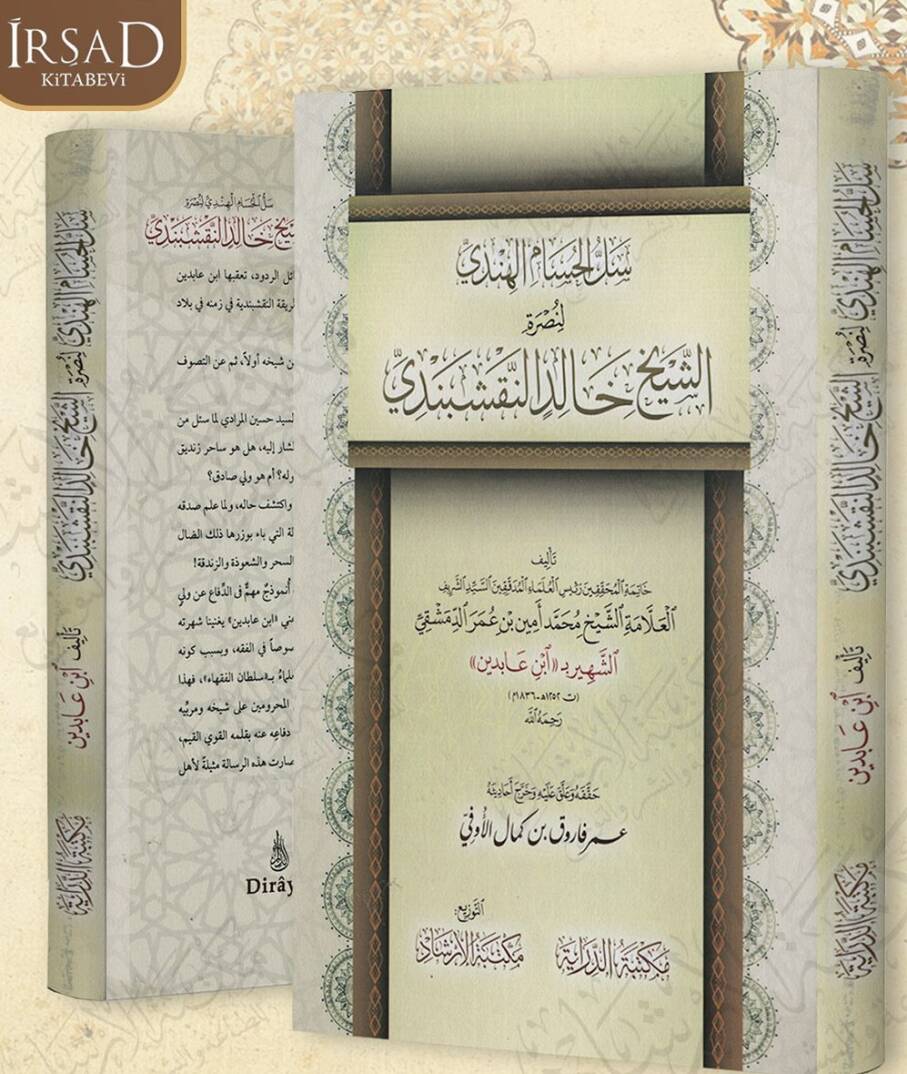 İRŞAD
KİTABEVİ
سَلُّ الحُسَامِ الهِنْدِيِّ
لِنُصْرَةِ
الشَّيْخِ خَالِدٍ النَّقْشَبَنْدِيِّ
تَأليف
خَاتِمَةِ المُحَقِّقِينَ رَئِيسِ العُلَمَاءِ المُدَقِّقِينَ السَّيِّدِ الشَّرِيفِ
العَلَّامَةِ الشَّيْخِ مُحَمَّد أَمِين بْنِ عُمَرَ الدِّمَشْقِيِّ
الشَّهِير بـ «ابْنِ عَابِدِين»
(ت ١٢٥٢هـ-١٨٣٦م)
رَحِمَهُ اللَّه
حَقَّقَهُ وَعَلَّقَ عَلَيْهِ وَخَرَّجَ أَحَادِيثَهُ
عمر فاروق بن كمال الأوفي
التَّوزيع:
مَكتَبَةُ الدِّرَايَةِ
مَكْتَبَةُ الإرشَادِ
سَلُّ الحُسَامِ الهِنْدِيِّ لِنُصْرَةِ الشَّيْخِ خَالِدٍ النَّقْشَبَنْدِيِّ
تَأليف ابْنِ عَابدين
مَكتَبَةُ الدِّرَايَةِ
سَلُّ الحُسَامِ الهِنْدِيِّ لِنُصْرَةِ الشَّيْخِ خَالِدٍ النَّقْشَبَنْدِيِّ
تَأليف ابْنِ عَابدين
مَكتَبَةُ الدِّرَايَةِ
سَلُّ الحُسَامِ الهِنْدِيِّ لِنُصْرَةِ
خَالِدٍ النَّقْشَبَنْدِيِّ
الردود، تعقبها ابن عابدين
النقشبندية في زمنه في بلاد
شيخه أولاً، ثم عن التصوف
حسين المرادي لما سئل من
إليه، هل هو ساحر زنديق
أم هو ولي صادق؟
واكتشف حاله، ولما علم صدقه
التي باء بوزرها ذلك الضال
السحر والشعوذة والزندقة!
أُنموذجٌ مهمٌّ في الدِّفاع عن وليٍ
«ابن عابدين» يغنينا شهرته
في الفقه، وبسبب كونه
بـ«سلطان الفقهاء»، فهذا
المحرومين على شيخه ومربّيه
دفاعِه عنه بقلمه القوي القيم،
صارت هذه الرسالة مثيلةً لأهل
Dirây